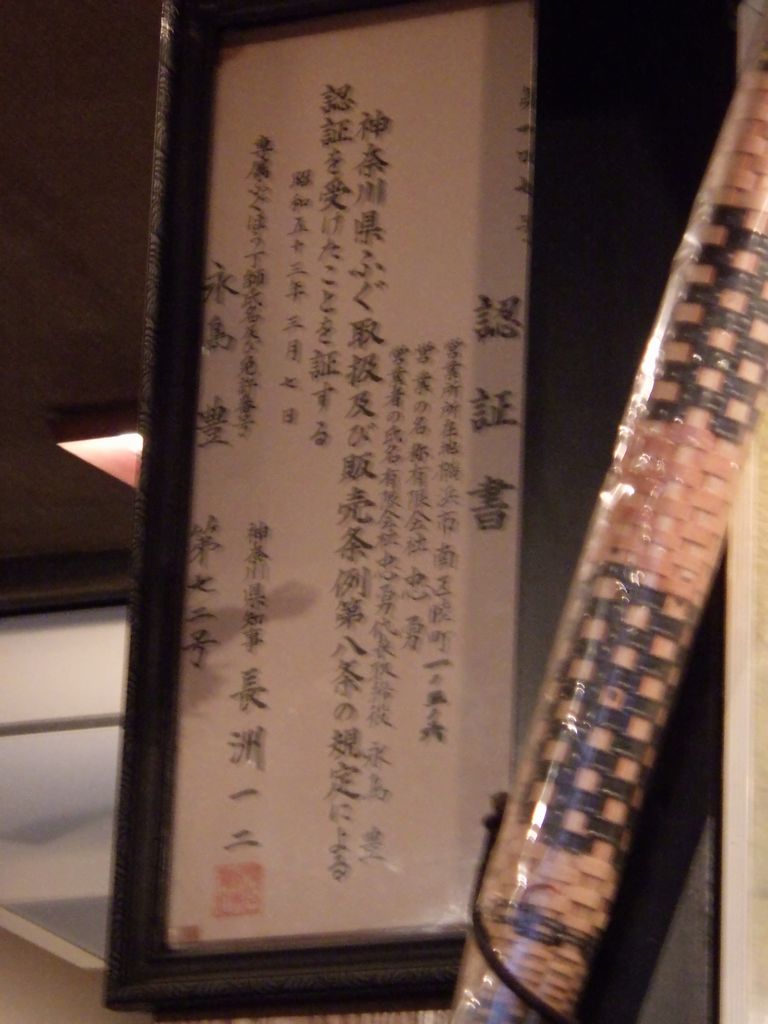 認証書
営業所所在地横浜市南区睦町一の五の六
営業の名称有限会社忠勇
営業者の氏名有限会社忠勇代表取締役永島豊
神奈川県ふぐ取扱及び販売条例第八条の規定による
認証を受けたことを証する
昭和五十三年三月七日
神奈川県知事長洲一二
永島豊 第七二号